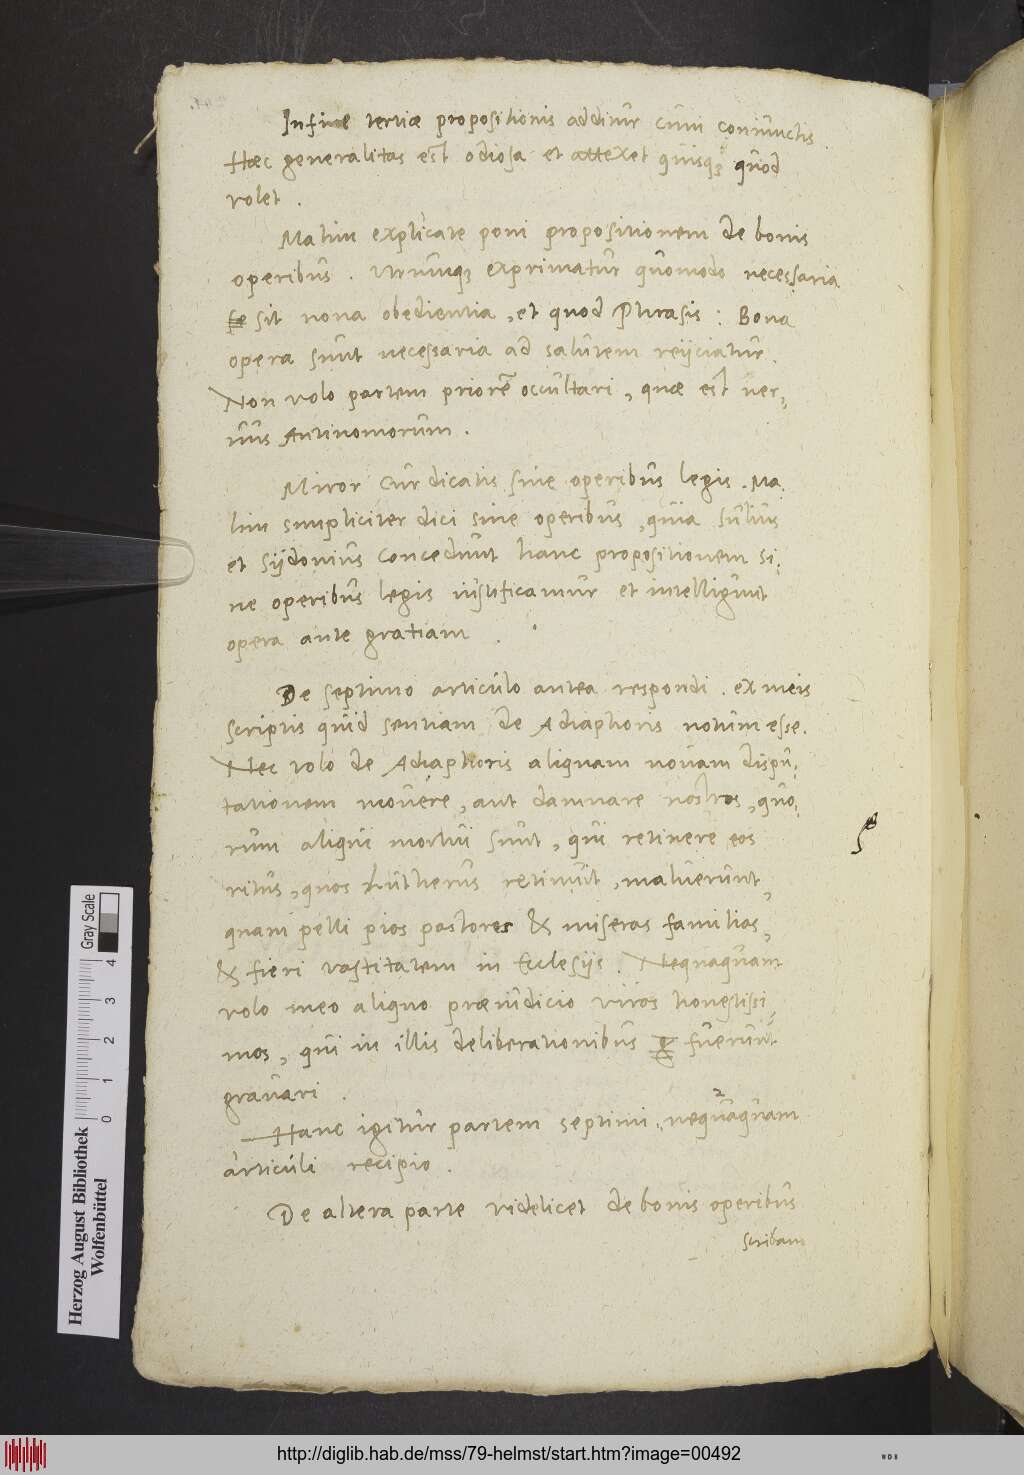 In fine tertiæ propositionis additur cum coniunctis.
Hæc generalitas est odiosa et attexet quisq3 quod
volet.
Malim explicate poni propositionem de bonis
operibus. utrumq3 exprimatur quomodo necessaria
sit nona obedientia, et quod Phrasis: Bona
opera sunt necessaria ad salutem reijciatur.
Non volo partem priorē occultari, quæ est ner-
uus Antinomorum.
Miror cur dicatis sine operibus legis. Ma-
lim simpliciter dici sine operibus, quia Iulius
et Sydonius concedunt hanc propositionem si-
ne operibus legis iustificamur et intelligunt
opera ante gratiam.
De septimo articulo antea respondi. ex meis
scriptis quid sentiam de Adiaphoris notum esse.
Nec volo de Adiaphoris aliquam nouam dispu-
tationem mouere, aut damnare nostros, quo-
rum aliqui mortui sunt, qui retinere eos
ritus, quos Lutherus retinuit, maluerunt,
quam pelli pios pastores & miseras familias,
& fieri vastitatem in Ecclesijs. Nequaquam
volo meo aliquo præiudicio viros honestissi-
mos, qui in illis deliberationibus fuerunt
grauari.
Hanc igitur partem septimi nequaquam
articuli recipio.
De altera parte videlicet de bonis operibus
scribam
Gray Scale
0 1 2 3 4
Herzog August Bibliothek
Wolfenbüttel
http://diglib.hab.de/mss/79-helmst/start.htm?image=00492